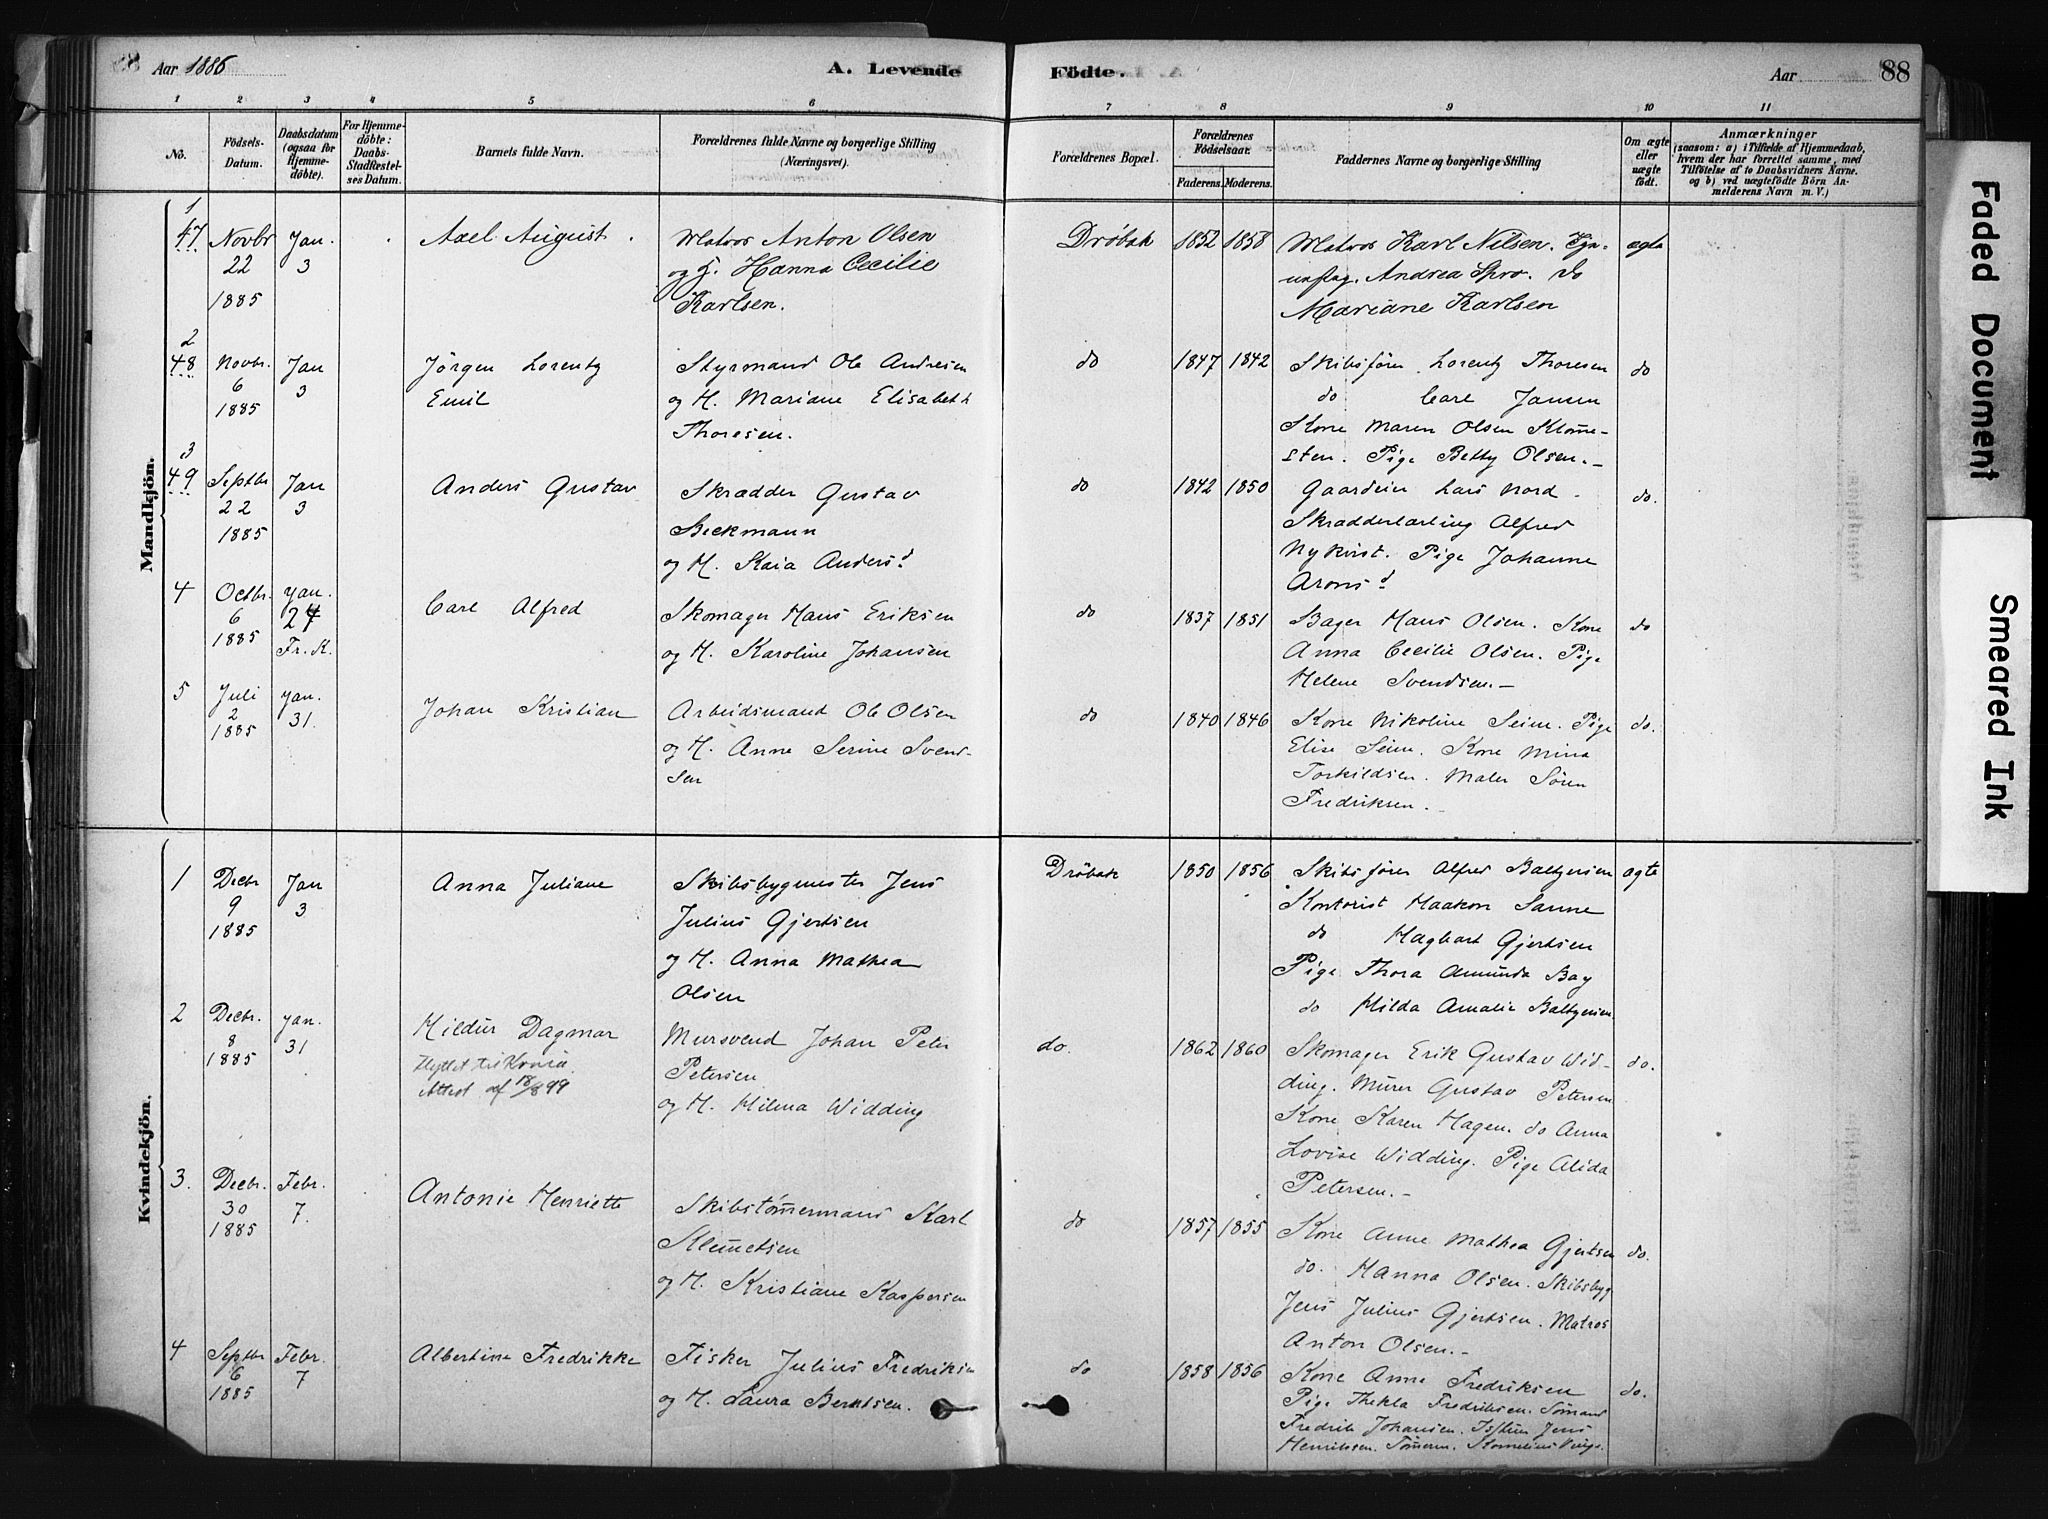 Aar 1886
A. Levende
Födte.
Aar
88
1 2 3 4 5 6 7 8 9 10 11
No.
Födsels-
Datum.
Daabsdatum
(ogsaa for
Hjemme-
döbte).
For Hjemme-
döbte:
Daabs-
Stadfæstel-
ses Datum.
Barnets fulde Navn.
Forældrenes fulde Navne og borgerlige Stilling
(Næringsvei).
Forældrenes Bopæl.
Forældrenes
Födselsaar.
Faderens. Moderens.
Faddernes Navne og borgerlige Stilling
Om ægte
eller
uægte
födt.
Anmærkninger
(saasom: a) i Tilfælde af Hjemmedaab,
hvem der har forrettet samme, med
Tilföielse af to Daabsvidners Navne.
og b) ved uægtefödte Börn An-
melderens Navn m. V.)
Mandkjön.
1
47
Novbr
22
1885
Jan.
3
Axel August.
Matros Anton Olsen
og H. Hanna Cecilie
Karlsen.
Drøbak
1852 1858
Matros Karl Nilsen.
Andrea Spro. do
Mariane Karlsen
ægte
2
48
Novbr.
6
1885
Jan
3
Jørgen Lorentz
Emil
Styrmand Ole Andresen
og H. Mariane Elisabeth
Thoresen.
do
1847 1842
Skibsfører Lorentz Thoresen
do Carl Jansen
Kone Maren Olsen Klomē-
sten. Pige Betty Olsen.-
do
3
49
Septbr
22
1885
Jan
3
Anders Gustav
Skrædder Gustav
Beckmann
og H. Kaia Anders d
do
1842 1850
Gaardeier Lars Nord
Skrædderlærling Alfred
Nykvist. Pige Johanne
Arons d
do.
4
Octbr.
6
1885
Jan.
24
Fr. K.
Carl Alfred
Skomager Hans Eriksen
og H. Karoline Johansen
do
1837 1851
Bager Hans Olsen. Kone
Anna Cecilie Olsen. Pige
Helene Svendsen.-
do
5
Juli
2
1885
Jan.
31.
Johan Kristian
Arbeidsmand Ole Olsen
og H. Anne Serine Svend-
sen
do
1840 1846
Kone Nikoline Seim. Pige
Elise Seim. Kone Mina
Torkildsen. Maler Søren
Fredriksen.-
do.
Kvindekjön.
1
Decbr
9
1885
Jan
3
Anna Juliane
Skibsbygmester Jens
Julius Gjertsen
og H. Anna Mathea
Olsen
Drøbak
1850 1856
Skibsfører Alfred Baltzersen
Kontorist Haakon Sanne
do Hagbart Gjertsen
Pige Thora Amunda Bay
do Hilda Amalie Baltzersen
ægte
2
Decbr.
8
1885
Jan.
31
Hildur Dagmar
Flyttet til Krnia.
Attest af 18/8 99
Mursvend Johan Peter
Petersen
og H. Hilma Widding
do.
1862 1860
Skomager Erik Gustav Wid-
ding. Murer Gustav Petersen
Kone Karen Hagen. do Anna
Lovise Widding. Pige Alida
Petersen.-
do.
3.
Decbr.
30
1885
Febr.
7.
Antonie Henriette
Skibstømmermand Karl
Klemetsen
og H. Kristiane Kaspersen
do
1857 1855
Kone Anne Mathea Gjertsen
do. Hanna Olsen. Skibsbyg
Jens Julius Gjertsen. Matros
Anton Olsen.-
do.
4
Septbr
6
1885
Febr.
7
Albertine Fredrikke
Fisker Julius Fredriksen
og H. Laura Berntsen.
do
1858 1856
Kone Anne Fredriksen
Pige Thekla Fredriksen. Sømand
Fredrik Johansen. Jens
Henriksen. Tømerm. Kornelius
do.
Faded Document
Smeared Ink